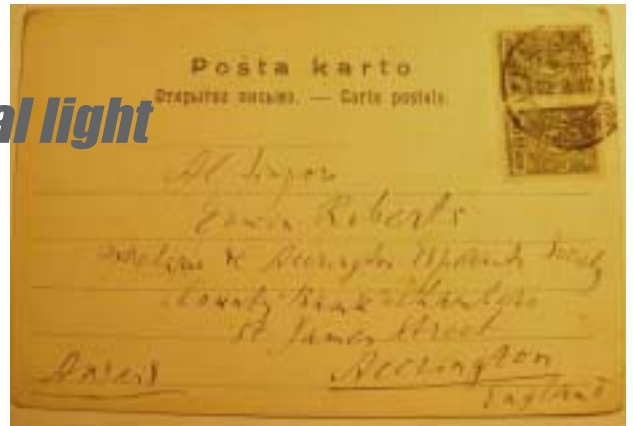 Posta karto
Открытое письмо. — Carte postale.
al light
Al Sinjoro
Edwin Roberts
Accrington Esperanto Society
County Bank Chambers
St James Street
Accrington
England